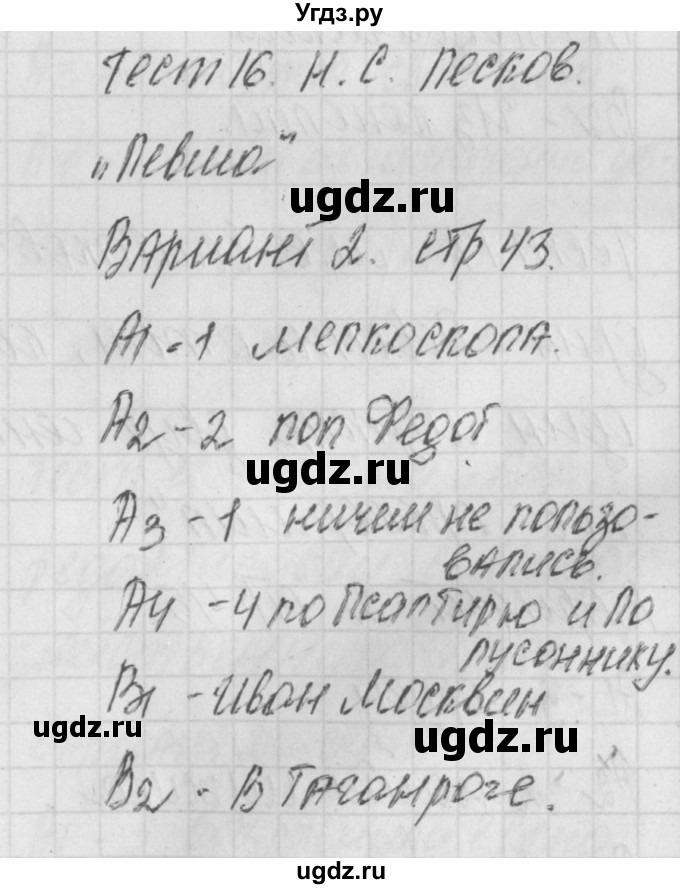 Угдз.ру
Тест 16. Н. С. Лесков.
„Левша"
ugdz.ru
Вариант 2. стр 43.
А1 - 1 мелкоскопа.
А2 - 2 поп Федот
ugdz.ru
А3 - 1 ничем не пользо-
вались.
ugdz.ru
А4 - 4 по Псалтирю и По
лусоннику.
В1 - Иван Москвин
ugdz.ru
ugdz.ru
В2 - В Таганроге.
ugdz.ru